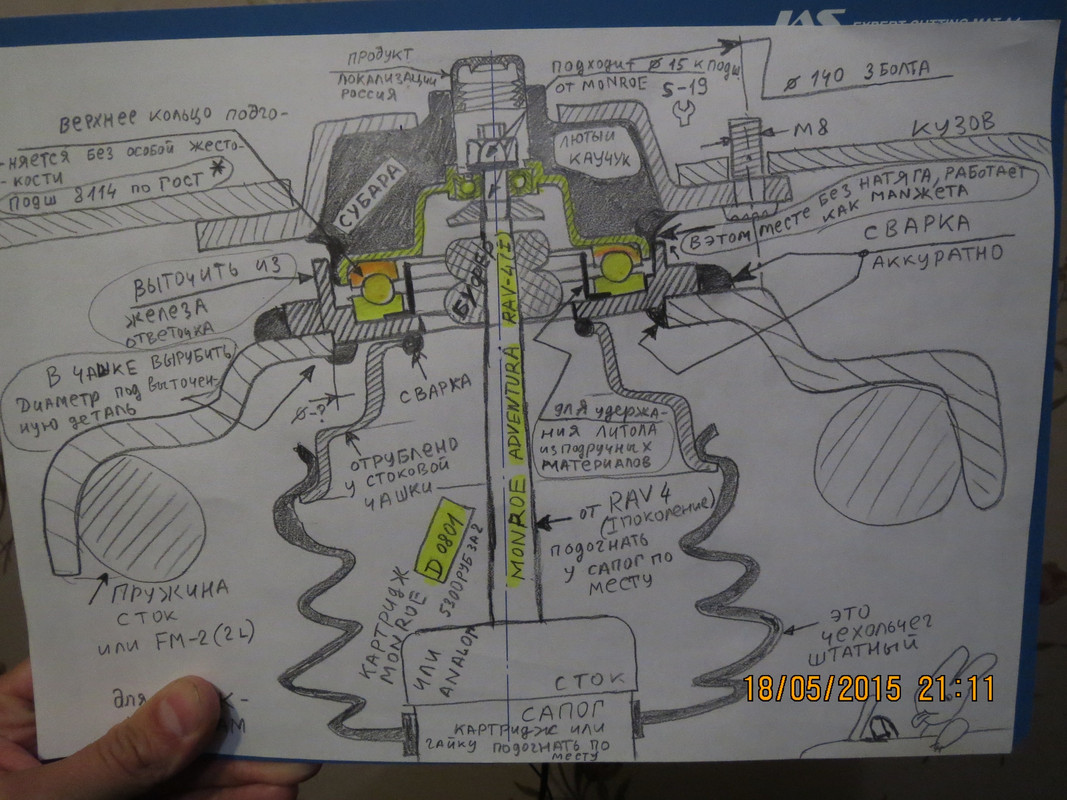 JAS EXPERT CUTTING MAT A4
ПРОДУКТ
ЛОКАЛИЗАЦИИ
РОССИЯ
ПОДХОДИТ ø 15 К ПОДШ
ОТ MONROE
S-19
ø 140 3 БОЛТА
M8
КУЗОВ
ВЕРХНЕЕ КОЛЬЦО ПОДГО-
-НЯЕТСЯ БЕЗ ОСОБОЙ ЖЕСТО-
-КОСТИ
ПОДШ 8114 ПО ГОСТ *
СУБАРА
ЛЮТЫЙ
КАУЧУК
В ЭТОМ МЕСТЕ БЕЗ НАТЯГА, РАБОТАЕТ
КАК МАНЖЕТА
СВАРКА
АККУРАТНО
ВЫТОЧИТЬ ИЗ
ЖЕЛЕЗА
ОТВЕТОЧКА
БУФЕР
MONROE ADVENTURA RAV-4/I
В ЧАШКЕ ВЫРУБИТЬ
ДИАМЕТР ПОД ВЫТОЧЕН-
НУЮ ДЕТАЛЬ
ø-?
СВАРКА
ОТРУБЛЕНО
У СТОКОВОЙ
ЧАШКИ
ДЛЯ УДЕРЖА-
НИЯ ЛИТОЛА
ИЗ ПОДРУЧНЫХ
МАТЕРИАЛОВ
ОТ RAV 4
(I ПОКОЛЕНИЕ)
ПОДОГНАТЬ
У САПОГ ПО
МЕСТУ
КАРТРИДЖ
MONROE
D 0801
5300РУБ ЗА 2
ИЛИ
ANALOM
ПРУЖИНА
СТОК
ИЛИ FM-2 (2L)
ЭТО
ЧЕХОЛЬЧЕГ
ШТАТНЫЙ
СТОК
САПОГ
КАРТРИДЖ ИЛИ
ГАЙКУ ПОДОГНАТЬ ПО
МЕСТУ
для
18/05/2015 21:11